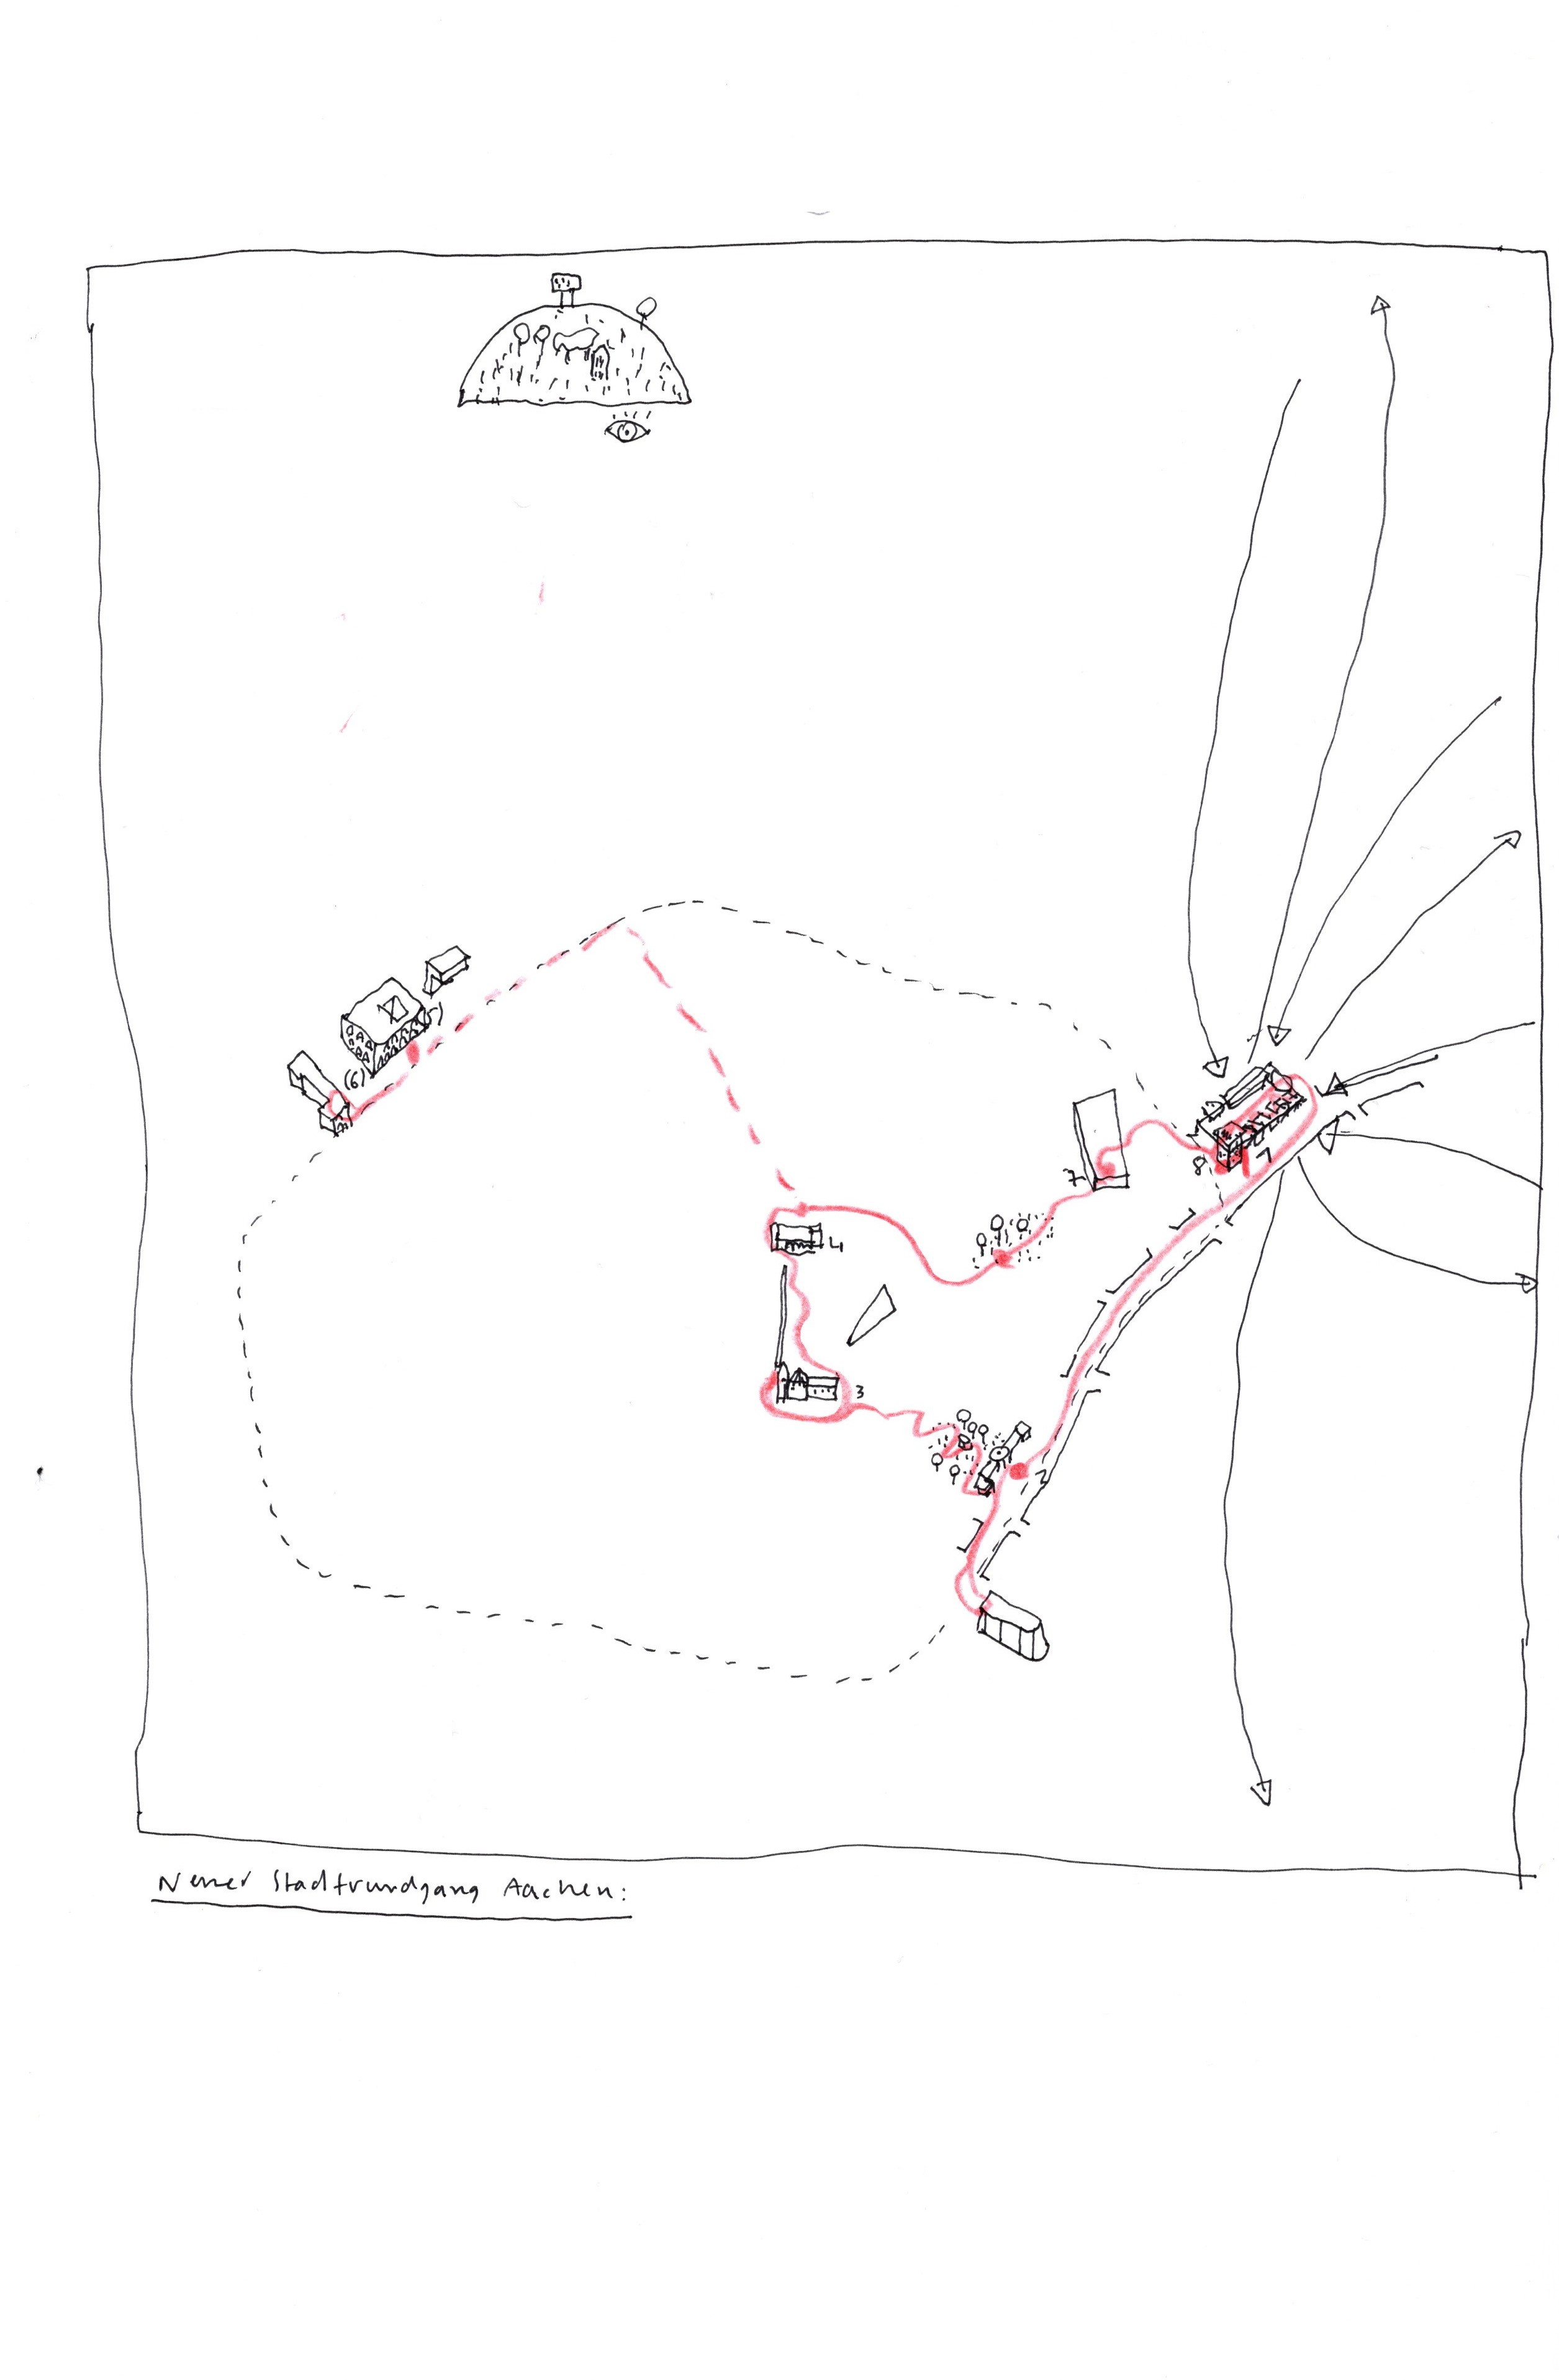 5)
(6)
8
1
7
4
3
2
Neuer Stadtrundgang Aachen: